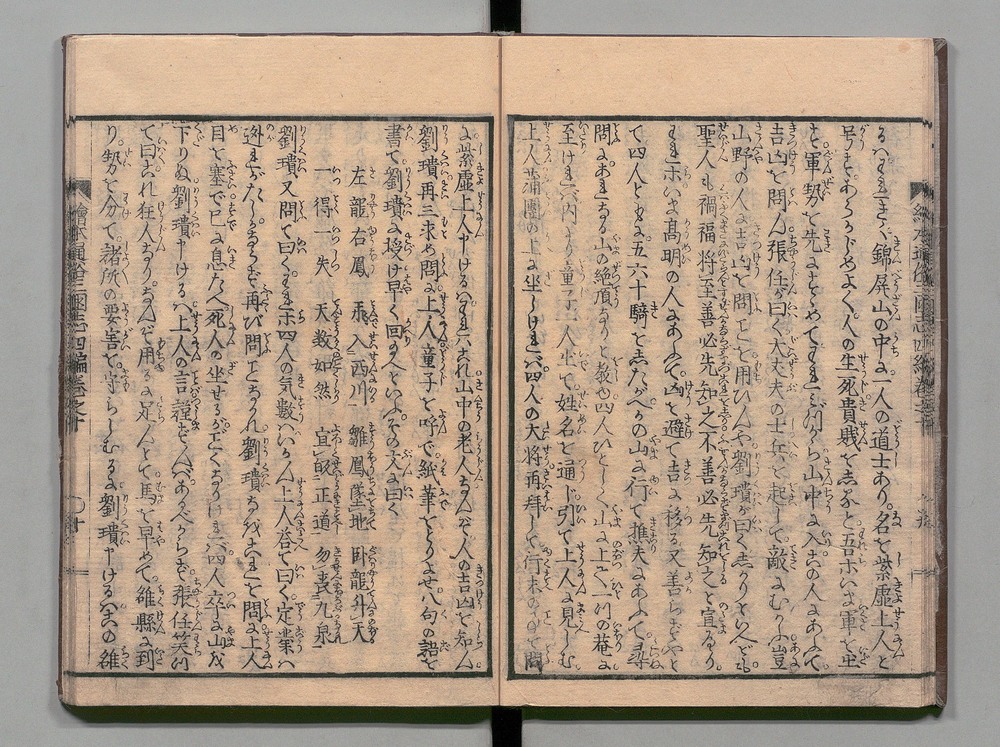 るハわれきく錦屏山の中に一人の道士あり。名を紫虚上人と
号すあらかじめよく人の生死貴賤をしると吾ホいま軍を出
を軍勢を先にすゝめてわれ〳〵山中に入この人にあふて
吉凶を問ん張任が曰く大丈夫の士兵を起して敵にむかふ豈
山野の人に吉凶を問ことを用ひんや劉璝が曰くしからず
聖人も禍福将至善必先知之不善必先知之と宣へり。
われホいま高明の人にあふて凶を避て吉に移る又善らずやと
て四人ともに五六十騎をしたがへかの山に行て樵夫にあふて尋
問にあれなる山の絶頂なりと教ゆ四人ひとしく山に上て一つの菴に
至けれバ内より童子一人出て姓名を通じ引て上人に見しむ
上人蒲團の上に坐しけれバ四人の大将再拜して行末の事を問
に紫虚上人申けるハわれハこれ山中の老人なんぞ人の吉凶を知ん
劉璝再三求め問に上人童子を呼で紙筆をとりよせ八句の語を
書て劉璝に授け早く回り玉へといふその文に曰く
左龍右鳳 飛入西川 雛鳳墜地 卧龍升天
一得一失 天数如然 宜皈正道 勿喪九泉
劉璝又問て曰くわれホ四人の気数ハいかん上人答て曰く定業ハ
逃れがたしなんぞ再び問ことあれ劉璝なほこれを問に上人
目を塞で已に息たへ死人の坐せるがごとくなりけれバ四人卒に山を
下りぬ劉璝申けるハ上人の言謹ずんバあるべからず張任笑
て曰これ狂人なり。なんぞ用るに足んとて馬を早めて雒縣に到
り。勢を分て。諸所の要害を。守らしむるに劉璝申けるハこの雒
繪本通俗三國志四編巻之十